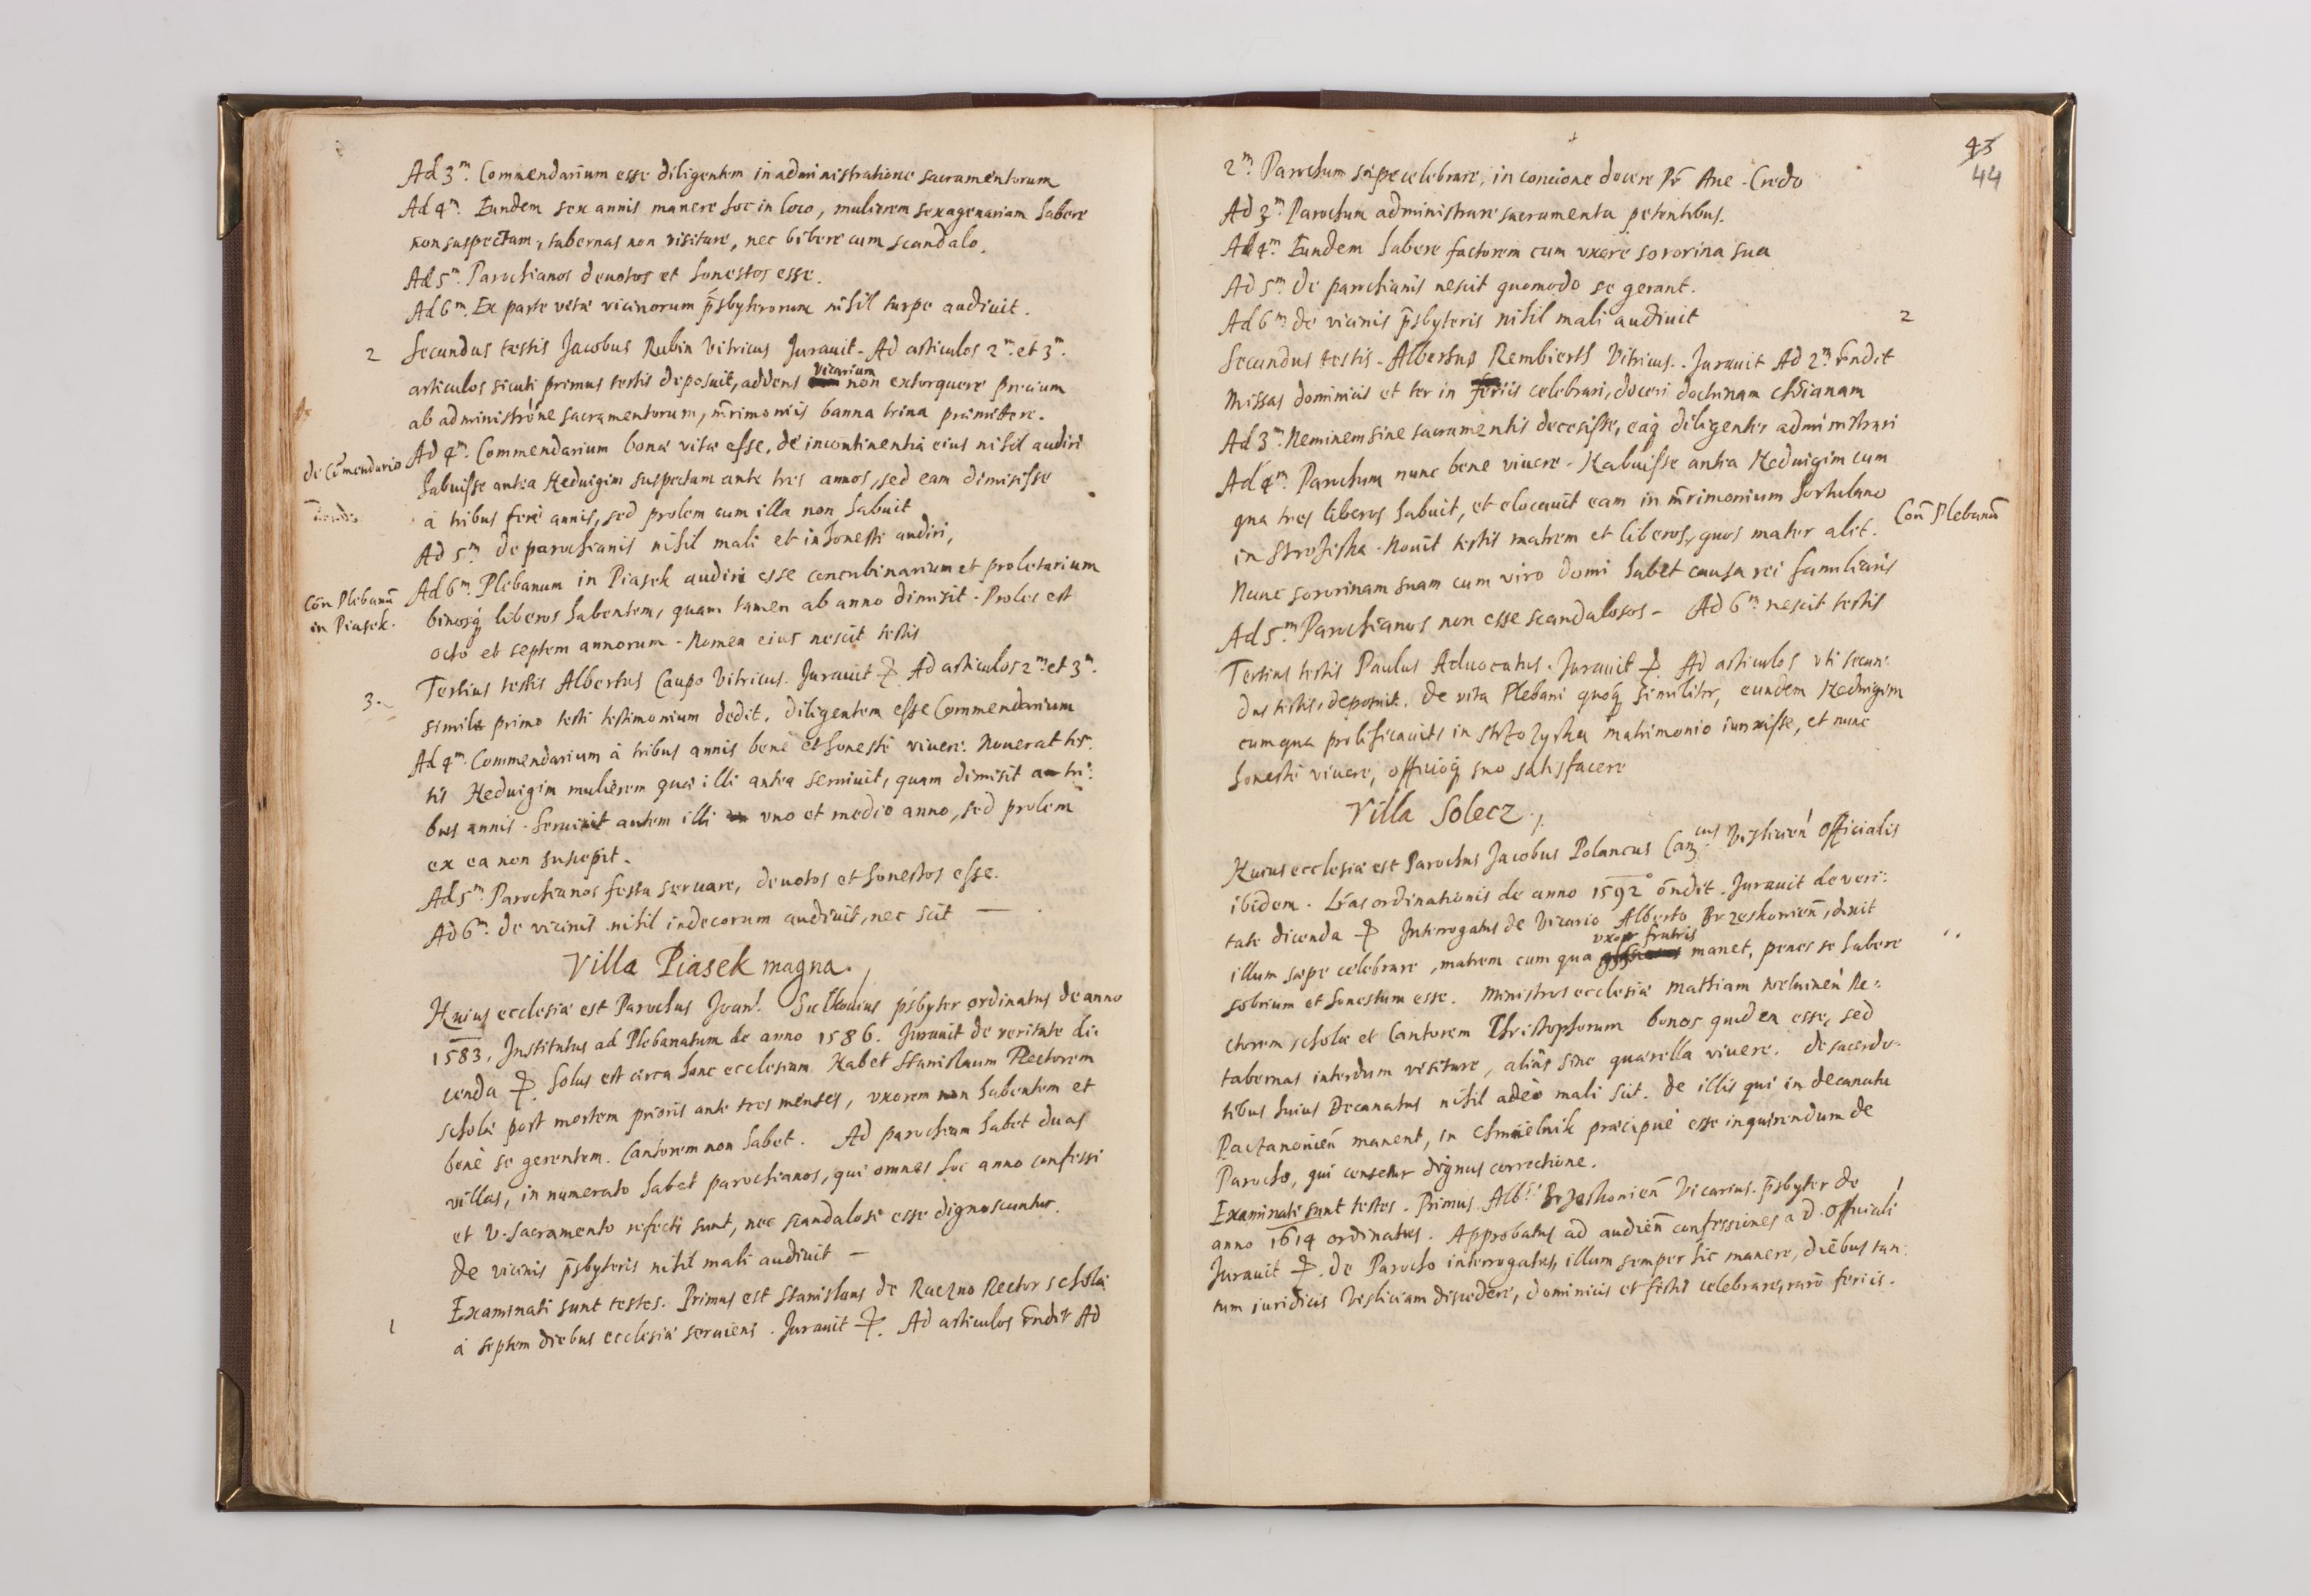 Ad 3ᵐ. Commendarium esse diligentem in administratione sacramentorum
Ad 4ᵐ. Eundem sex annis manere hoc in loco, mulierem sexagenariam habere
non suspectam, tabernas non visitare, nec bibere cum scandalo.
Ad 5ᵐ. Parochianos deuotos et honestos esse.
Ad 6ᵐ. Ex parte vitæ vicinorum p̄sbyterorum nihil turpe audiuit.
2 Secundus testis Jacobus Rubin Vitricus Jurauit - Ad articulos 2ᵐ. et 3ᵐ.
articulos sicuti primus testis deposuit, addens vicarium non extorquere precium
ab administrōne sacramentorum, m̄rimoniis banna trina præmittere.
de Cōmendario Ad 4ᵐ. Commendarium bonæ vitæ esse, de incontinentia eius nihil audiri
habuisse antea Heduigim suspectam ante tres annos, sed eam dimisisse
à tribus ferè annis, sed prolem cum illa non habuit
Ad 5ᵐ de parochianis nihil mali et inhonesti audiri,
Con̄ Plebanū Ad 6ᵐ. Plebanum in Piasek audiri esse concubinarium et proletarium
in Piasek. binosq́ liberos habentem, quam tamen ab anno dimisit. Proles est
octo et septem annorum. Nomen eius nescit testis
3. Tertius testis Albertus Caupo Vitricus. Jurauit ☩. Ad articulos 2ᵐ. et 3ᵐ.
simile primo testi testimonium dedit, diligentem esse Commendarium
Ad 4ᵐ. Commendarium à tribus annis benè et honestè viuere. Nouerat tes-
tis Heduigim mulierem quæ illi antea seruiuit, quam dimisit a tri-
bus annis. Seruiuit autem illi uno et medio anno, sed prolem
ex ea non suscepit.
Ad 5ᵐ Parochianos festa seruare, deuotos et honestos esse.
Ad 6ᵐ. de vicinis nihil indecorum audiuit, nec scit —
Villa Piasek magna.
Huius ecclesiæ est Parochus Joan! p̄sbyter ordinatus de anno
1583, Institutus ad Plebanatum de anno 1586. Jurauit de veritate di-
cenda ☩. Solus est circa hanc ecclesiam Habet Stanislaum Rectorem
scholæ post mortem prioris ante tres menses, vxorem non habentem et
benè se gerentem. Cantorem non habet. Ad parochiam habet duas
villas, in numerato habet parochianos, qui omnes hoc anno confessi
et V. Sacramento refecti sunt, nec scandalosi esse dignoscuntur.
de vicinis p̄sbyteris nihil mali audiuit —
Examinati sunt testes. Primus est Stanislaus de Raczno Rector scholæ
1 à septem diebus ecclesiæ seruiens. Jurauit ☩. Ad articulos r̄ndit Ad
43
44
2ᵐ. Parochum sæpe celebrare, in concione docere Pr̄ Aue. Credo
Ad 3ᵐ. Parochum administrare sacramenta petentibus.
Ad 4ᵐ Eundem habere factorem cum vxore sororina sua
Ad 5ᵐ. de parochianis nescit quomodo se gerant.
Ad 6ᵐ de vicinis p̄sbyteris nihil mali audiuit
2
Secundus testis - Albertus Rembierth Vitricus.. Jurauit Ad 2ᵐ. r̄ndit
Missas dominicis et ter in feriis celebrari, doceri doctrinam chr̄ianam
Ad 3ᵐ. Neminem sine sacramentis decesisse, eaq́ diligenter administrari
Ad 4ᵐ. Parochum nunc bene viuere. Habuisse antea Heduigim cum
qua tres liberos habuit, et elocauit eam in m̄rimonium hortulano Con̄ Plebanū
in Strozisha. Nouit testis matrem et liberos, quos mater alit.
Nunc sororinam suam cum viro domi habet causa rei familiaris
Ad 5ᵐ Parochianos non esse scandalosos - Ad 6ᵐ nescit testis
Tertius testis Paulus Aduocatus. Jurauit ☩. Ad articulos vti secun-
dus testis, deposuit. de vita Plebani quoq́ similiter, eundem Heduigim
cum qua prolificauit, in matrimonio iunxisse, et nunc
honestè viuere, officioq́ suo satisfacere
Villa Solecz.
Huius ecclesiæ est Parochus Jacobus Polancus Can̄cus Visliciēn Officialis
ibidem. Lr̄as ordinationis de anno 1592° on̄dit. Jurauit de veri-
tate dicenda ☩ Interrogatus de Vicario Alberto Brzeskonien̄, dixit
illum sæpe celebrare, matrem cum qua vxor fratris manet, penes se habere
sobrium et honestum esse. Ministros ecclesiæ Mathiam Re-
ctorem scholæ et Cantorem Christophorum bonos quidem esse, sed
tabernas interdum visitare, aliās sine quærella viuere. de sacerdo-
tibus huius Decanatus nihil adeò mali scit. de illis qui in decanatu
Pactanouien̄ manent, in Chmielnik præcipuè esse inquirendum de
Parocho, qui censetur dignus correctione.
Examinati sunt testes. Primus. Albᵗ. Brzeskonien̄ Vicarius. p̄sbyter de
anno 1614 ordinatus. Approbatus ad audien̄ confessiones a d. officiali
Jurauit ☩. de Parocho interrogatus, illum semper hic manere, diebus tan-
tum iuridicis Visliciam discedere, dominicis et festis celebrare, rarò feriis.